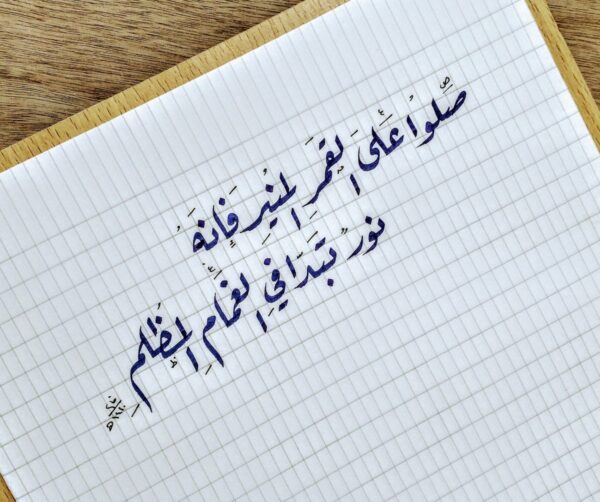 صَلُّوا عَلَى القَمَرِ المُنِيرِ فَإِنَّهُ
نُورٌ تَبَدَّا فِي الغَمَامِ المُظْلِمِ